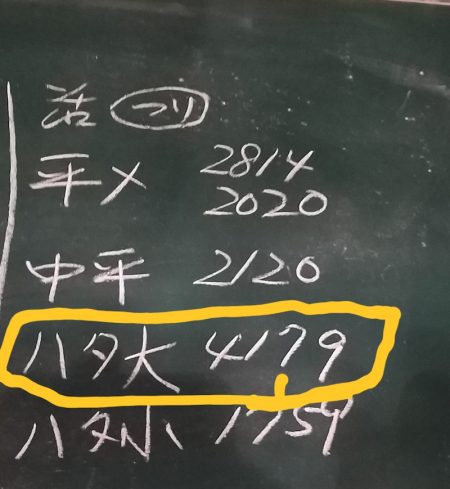 活 つり
平メ 2814
2020
中平 2120
ハタ大 4179
ハタ小 1754